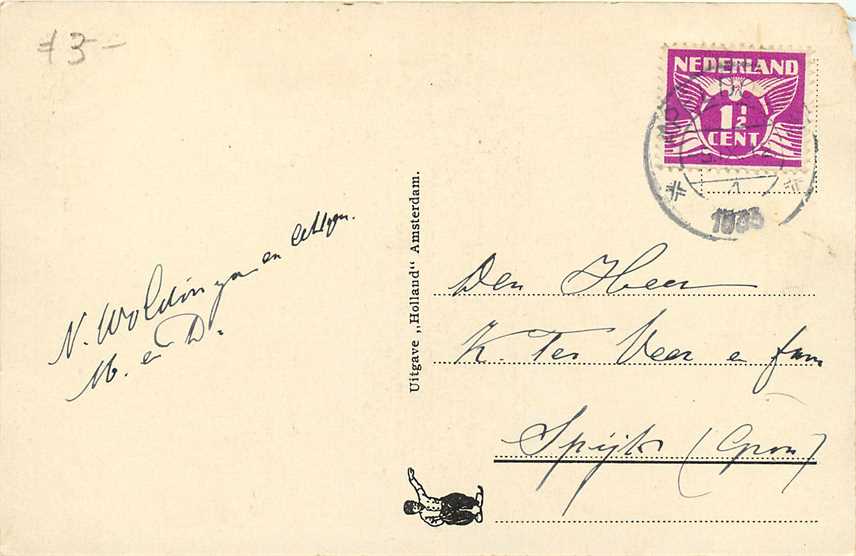 13-
NEDERLAND
1½
CENT
1
1933
Uitgave „Holland“ Amsterdam.
N. Woldinga en echtgen.
M. en D.
Den Heer
K. Ter Veer e fam
Spijk (Gron)